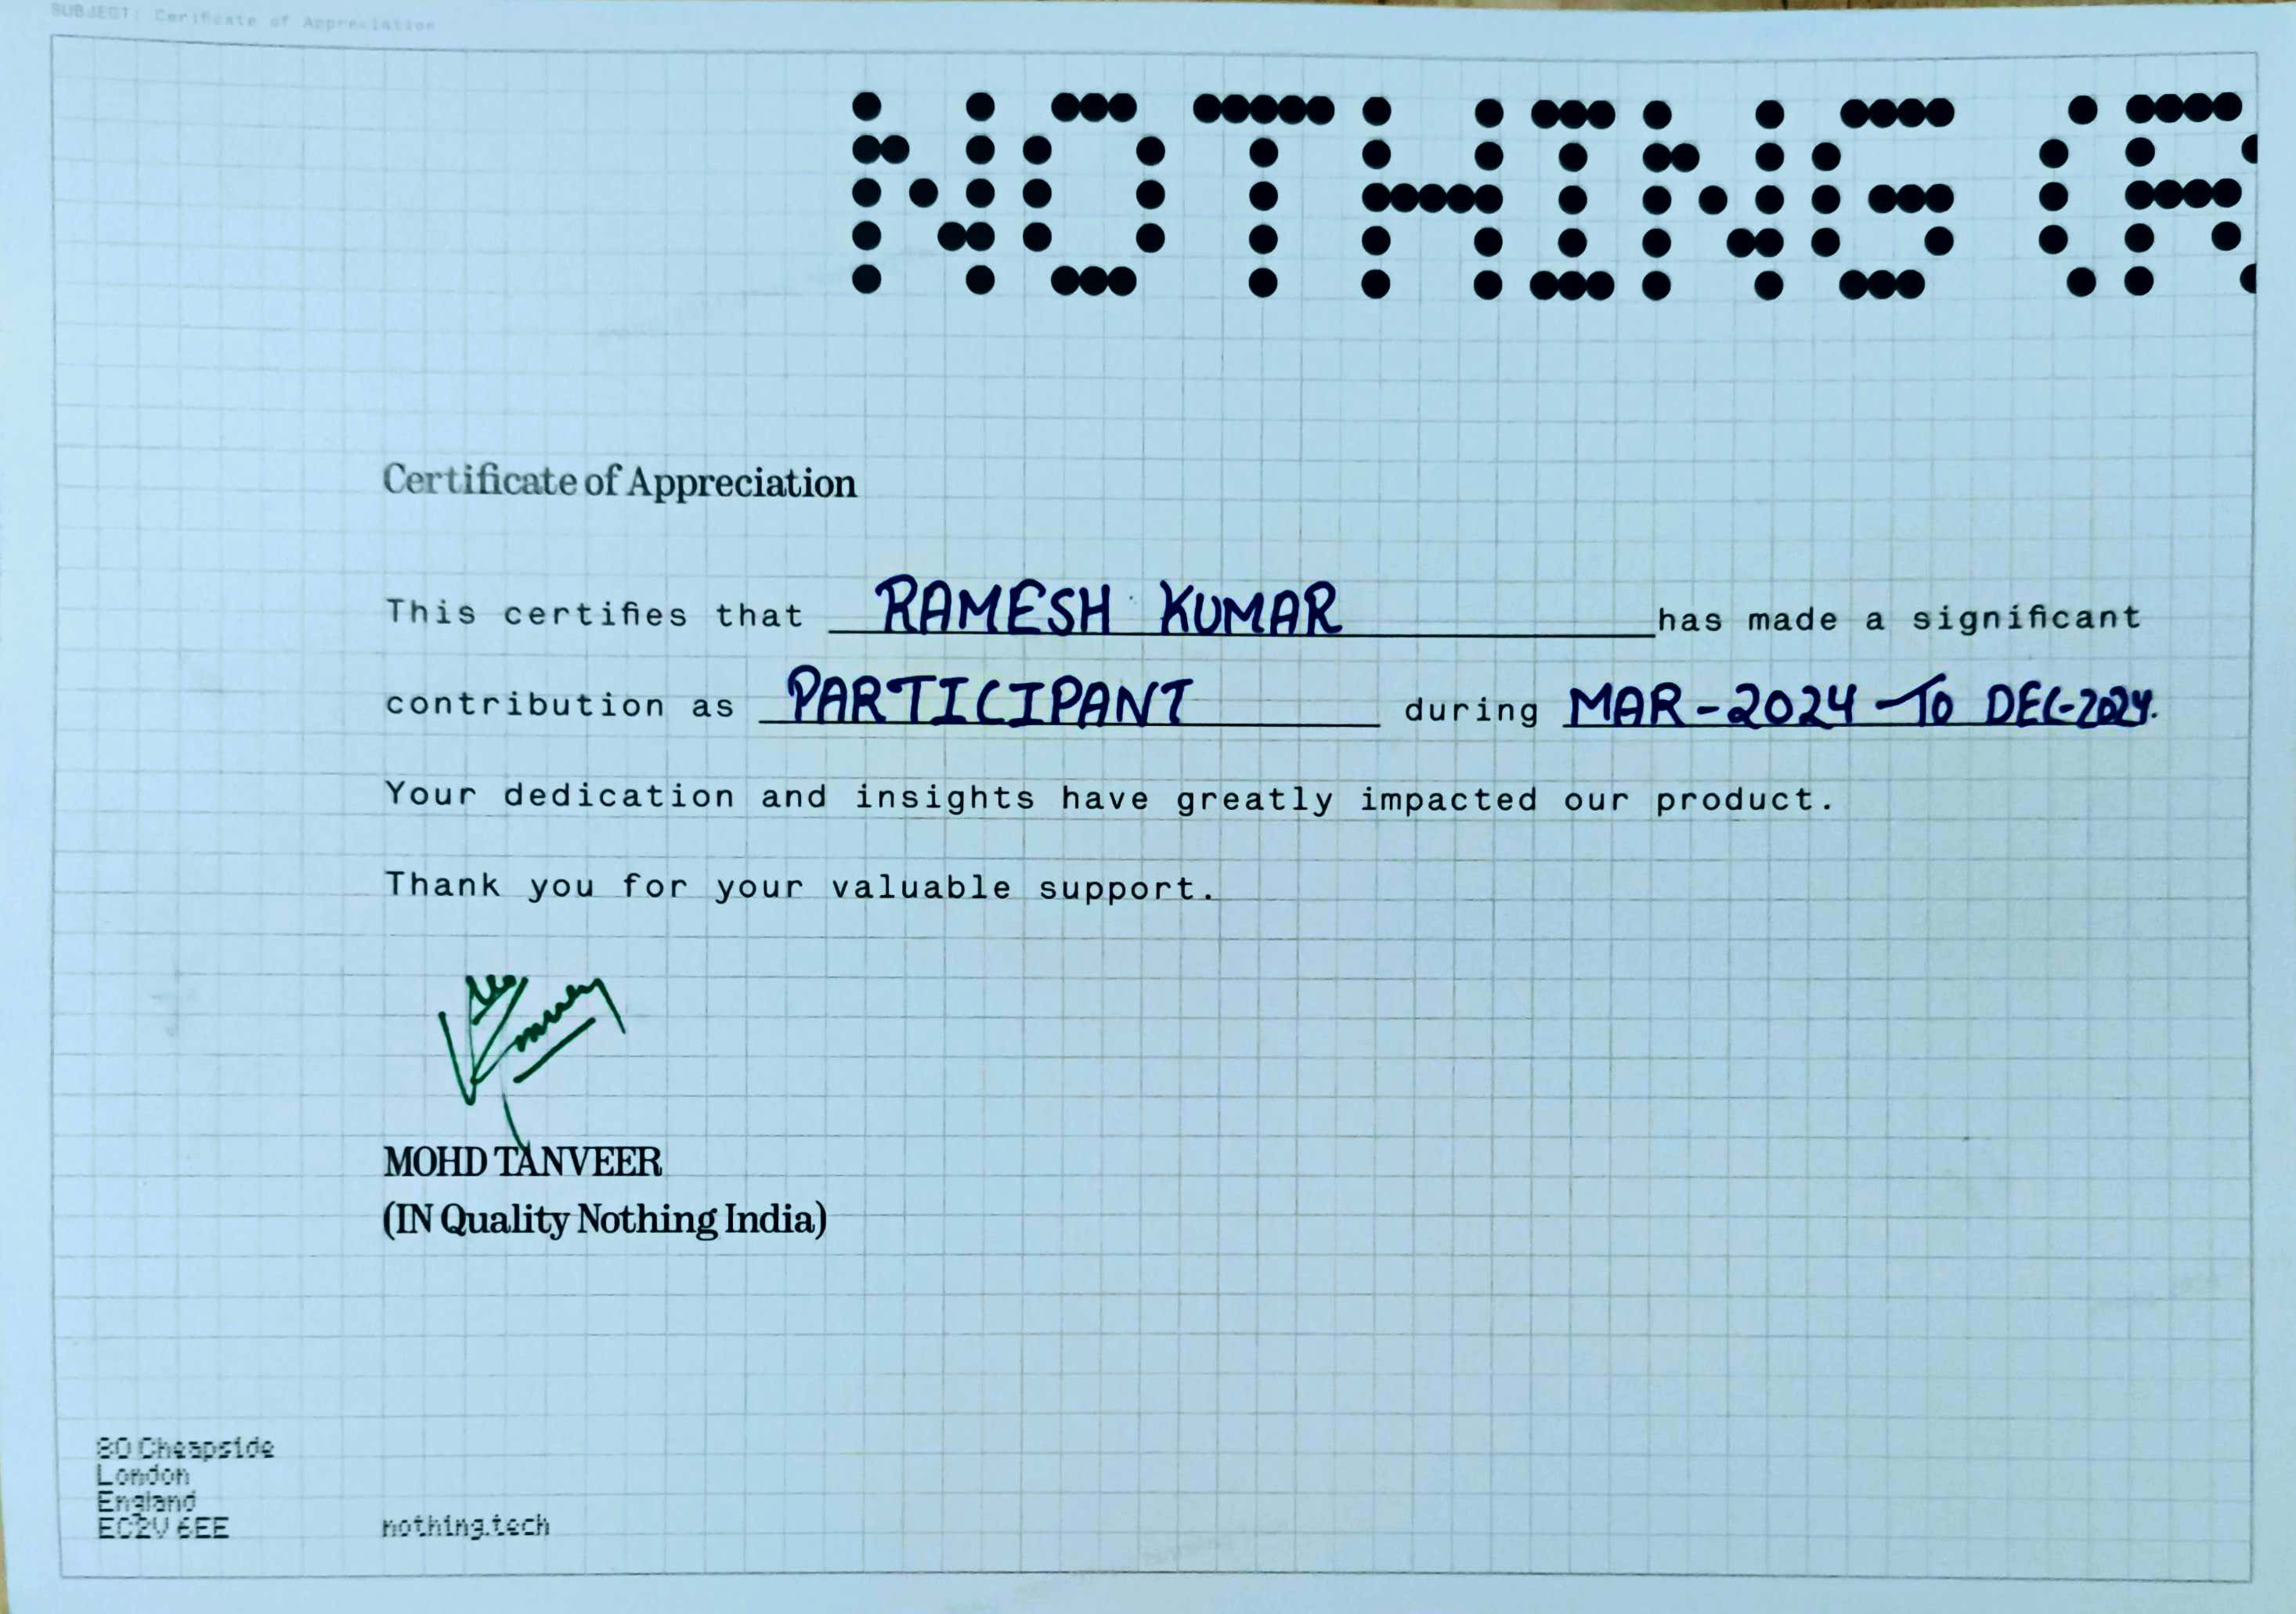 SUBJECT: Cerificate of Appreciation
NOTHING (R
Certificate of Appreciation
This certifies that RAMESH KUMAR has made a significant
contribution as PARTICIPANT during MAR-2024 TO DEC-2024.
Your dedication and insights have greatly impacted our product.
Thank you for your valuable support.
MOHD TANVEER
(IN Quality Nothing India)
80 Cheapside
London
England
EC2V 6EE
nothing.tech